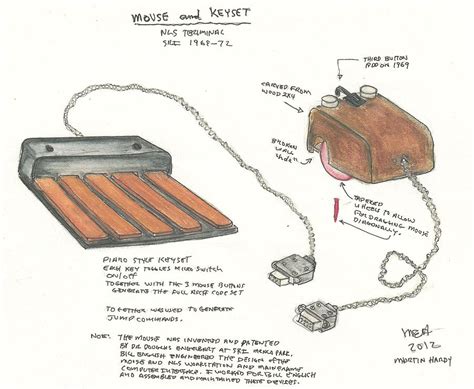 MOUSE and KEYSET
NLS TERMINAL
SRI 1968-72
THIRD BUTTON
ADD ON 1969
CARVED FROM
WOOD 2X4
BROKEN
WALL
TAPERED
WHEELS TO ALLOW
FOR DRAGGING MOUSE
DIAGONALLY.
PIANO STYLE KEYSET
EACH KEY TOGGLES MICRO SWITCH
ON/OFF
TOGETHER WITH THE 3 MOUSE BUTTONS
GENERATE THE FULL ASCII CODE SET
ALSO WAS USED TO GENERATE
JUMP COMMANDS.
NOTE: THE MOUSE WAS INVENTED AND PATENTED
BY DR. DOUGLAS ENGELBART AT SRI MENLO PARK.
BILL ENGLISH ENGINEERED THE DESIGN OF THE
MOUSE AND NLS WORKSTATION AND MAINFRAME
COMPUTER INTERFACE. I WORKED FOR BILL ENGLISH
AND ASSEMBLED AND MAINTAINED THESE DEVICES.
2012
MARTIN HARDY